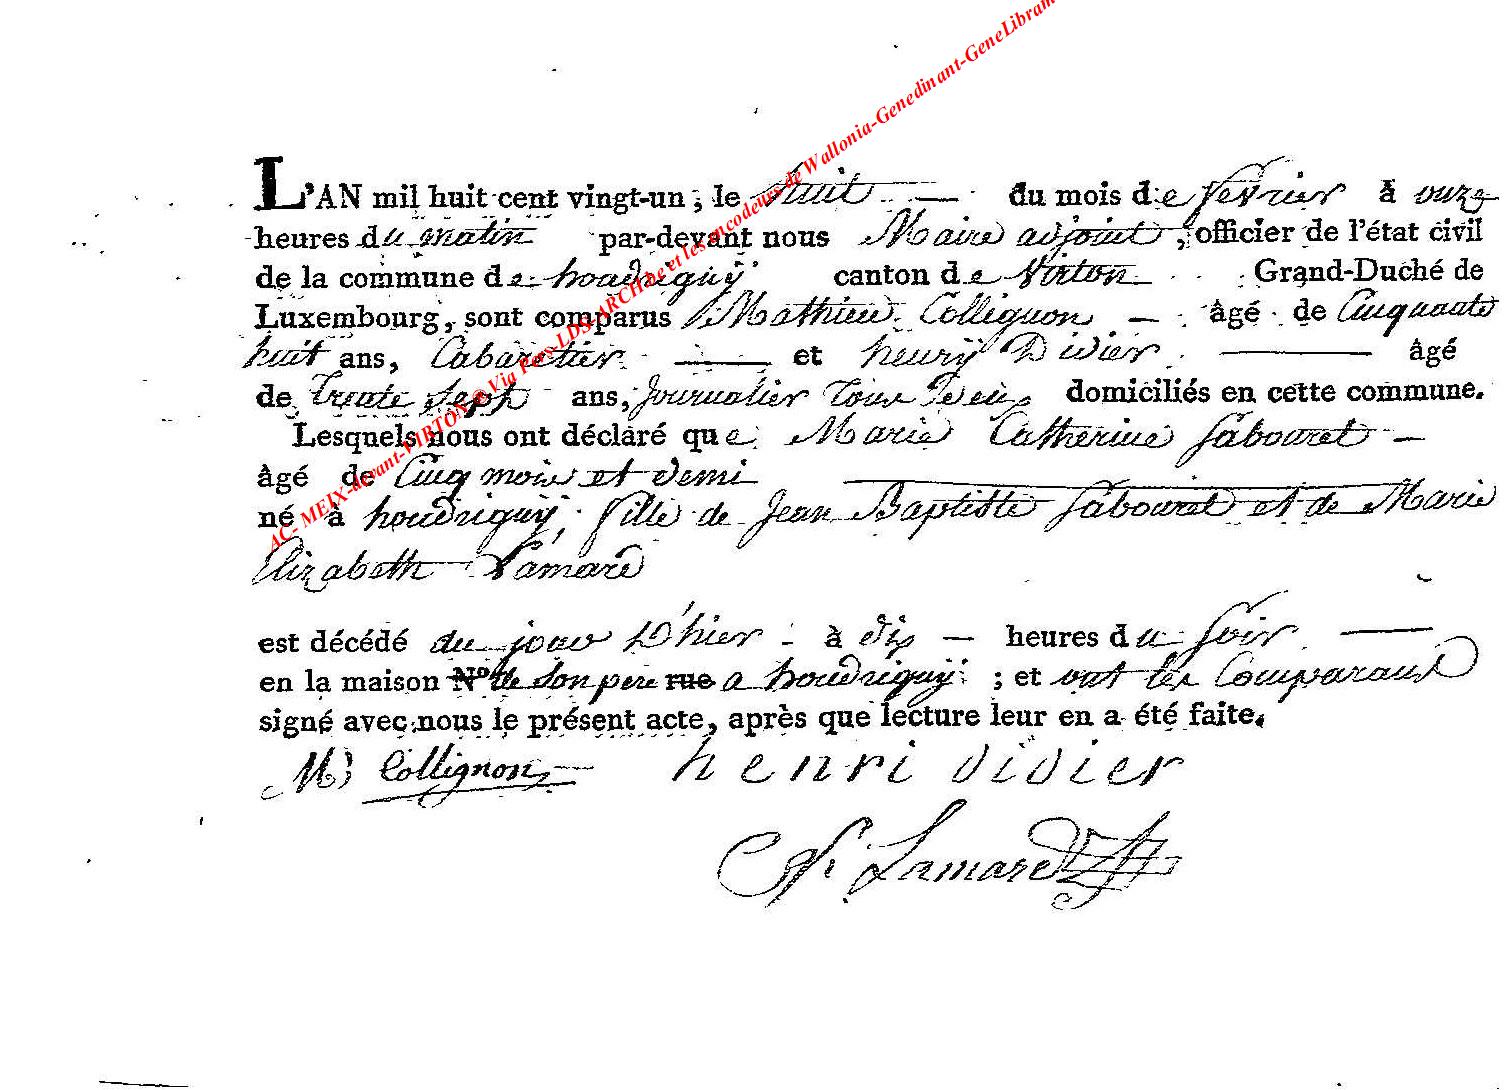 L'AN mil huit cent vingt-un, le huit du mois de fevrier à onze
heures du matin par-devant nous Maire adjoint, officier de l'état civil
de la commune de houdriguÿ canton de Virton Grand-Duché de
Luxembourg, sont comparus Mathieu Collignon âgé de Cinquante
huit ans, Cabaretier et henrÿ Didier âgé
de trente sept ans, journalier tous deux domiciliés en cette commune.
Lesquels nous ont déclaré que Marie Catherine Sabouret
âgé de Cinq mois et demi
né à houdriguÿ, fille de Jean Baptiste Sabouret et de Marie
Elizabeth Lamard
est décédé du jour D'hier à dix heures du soir
en la maison N.o de son pere rue a houdriguÿ ; et ont les Comparant
signé avec nous le présent acte, après que lecture leur en a été faite.
M Collignon henri didier
Lamard
AC- MEIX-devant-VIRTON @ Via Pers-LDS-ARCH.be et les encodeurs de Wallonia-Genedinant-GeneLibram